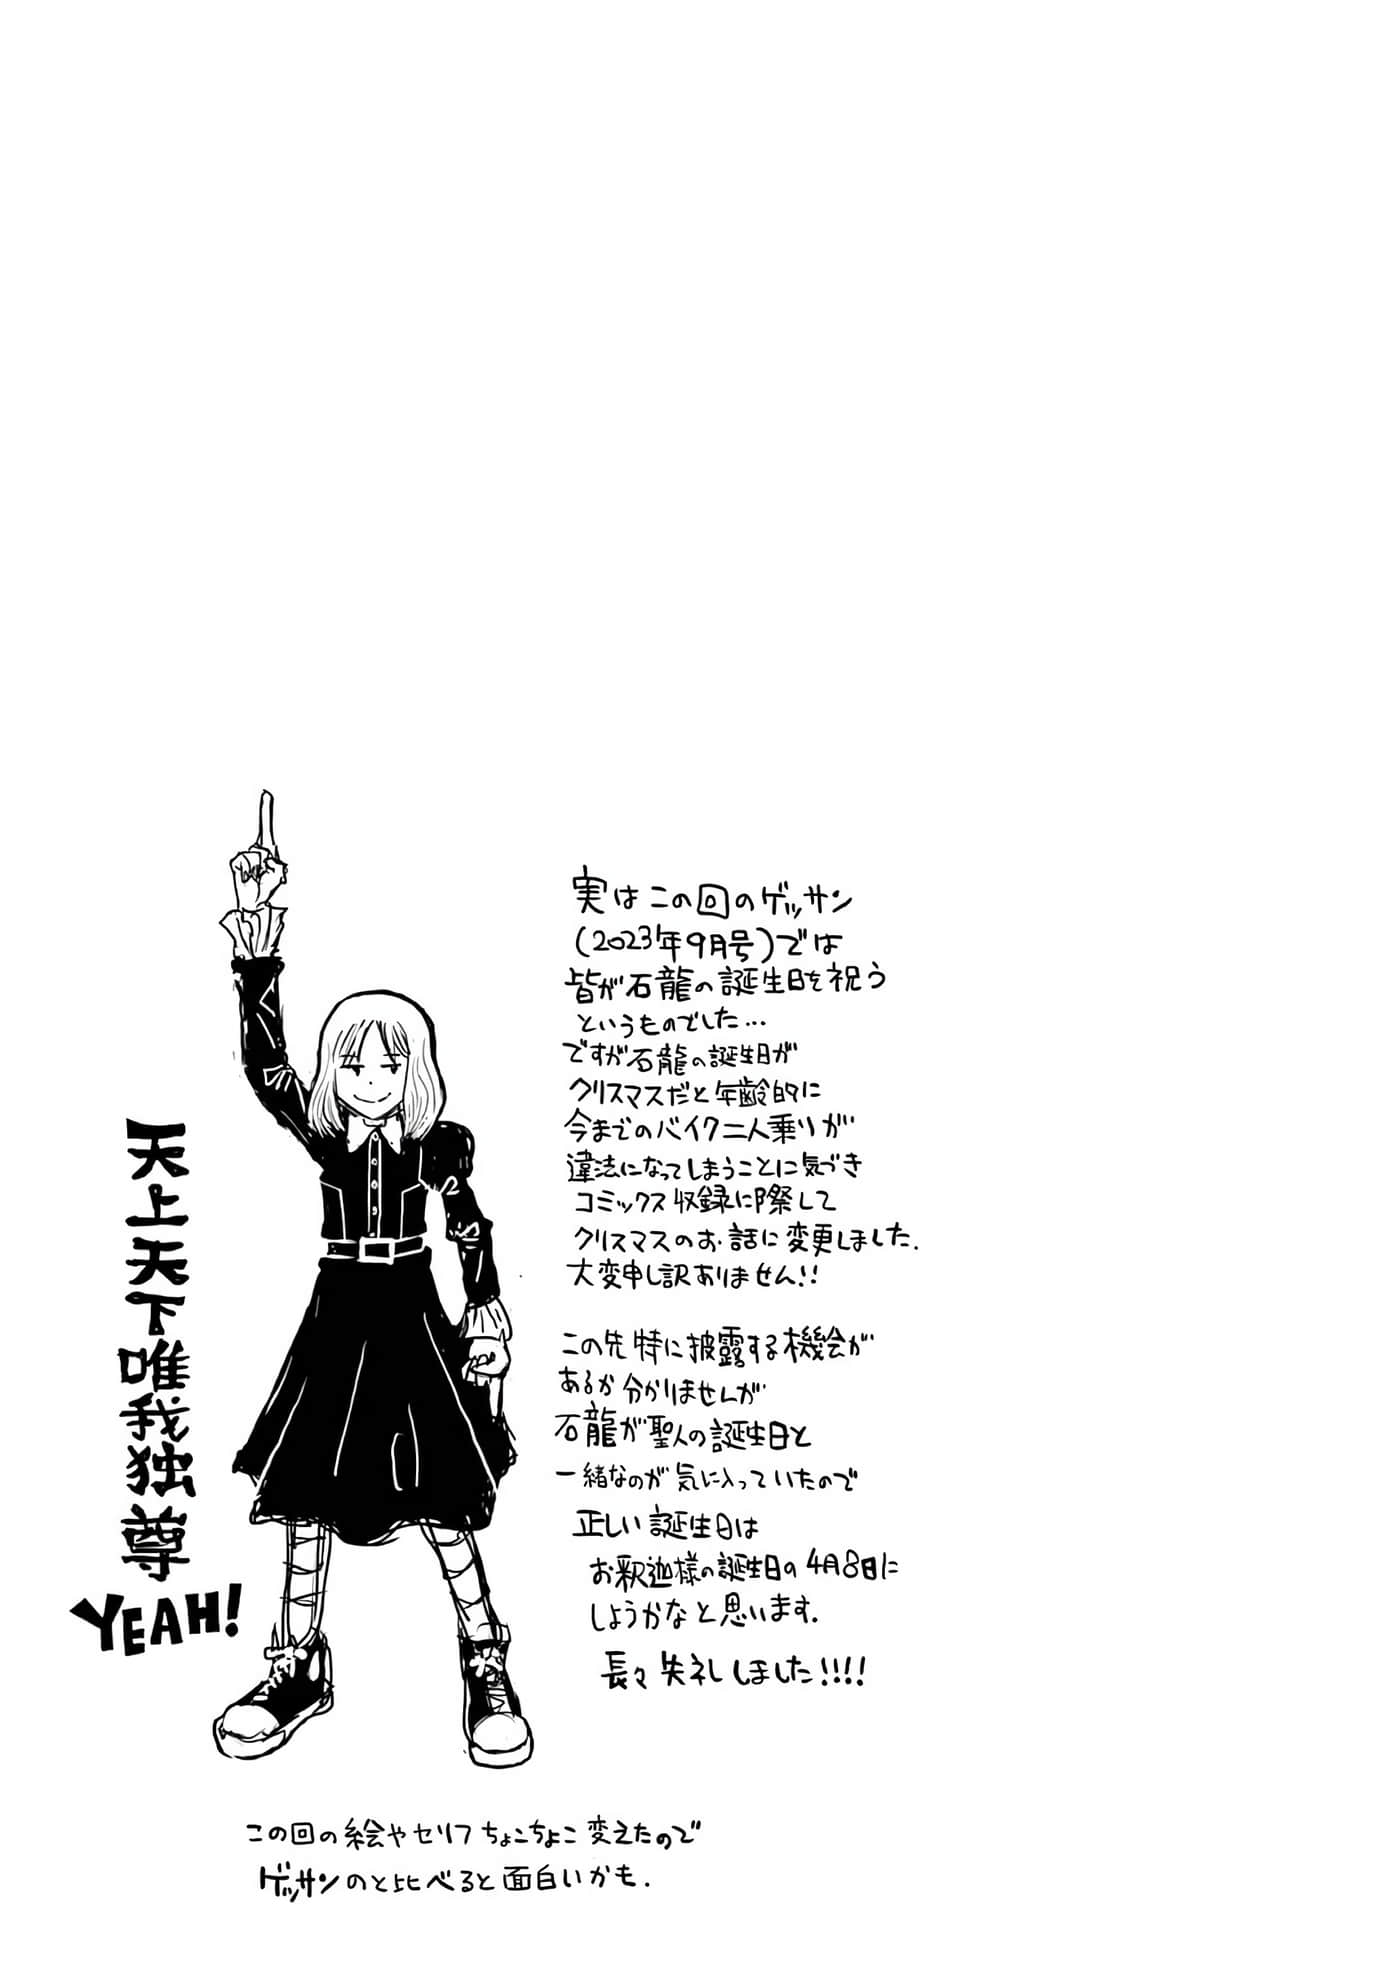 実はこの回のゲッサン
(2023年9月号)では
皆が石龍の誕生日を祝う
というものでした…
ですが石龍の誕生日が
クリスマスだと年齢的に
今までのバイク二人乗りが
違法になってしまうことに気づき
コミックス収録に際して
クリスマスのお話に変更しました.
大変申し訳ありません!!
この先特に披露する機会が
あるか分かりませんが
石龍が聖人の誕生日と
一緒なのが気に入っていたので
正しい誕生日は
お釈迦様の誕生日の4月8日に
しようかなと思います.
長々失礼しました!!!!
天上天下唯我独尊
YEAH!
この回の絵やセリフちょこちょこ変えたので
ゲッサンのと比べると面白いかも.